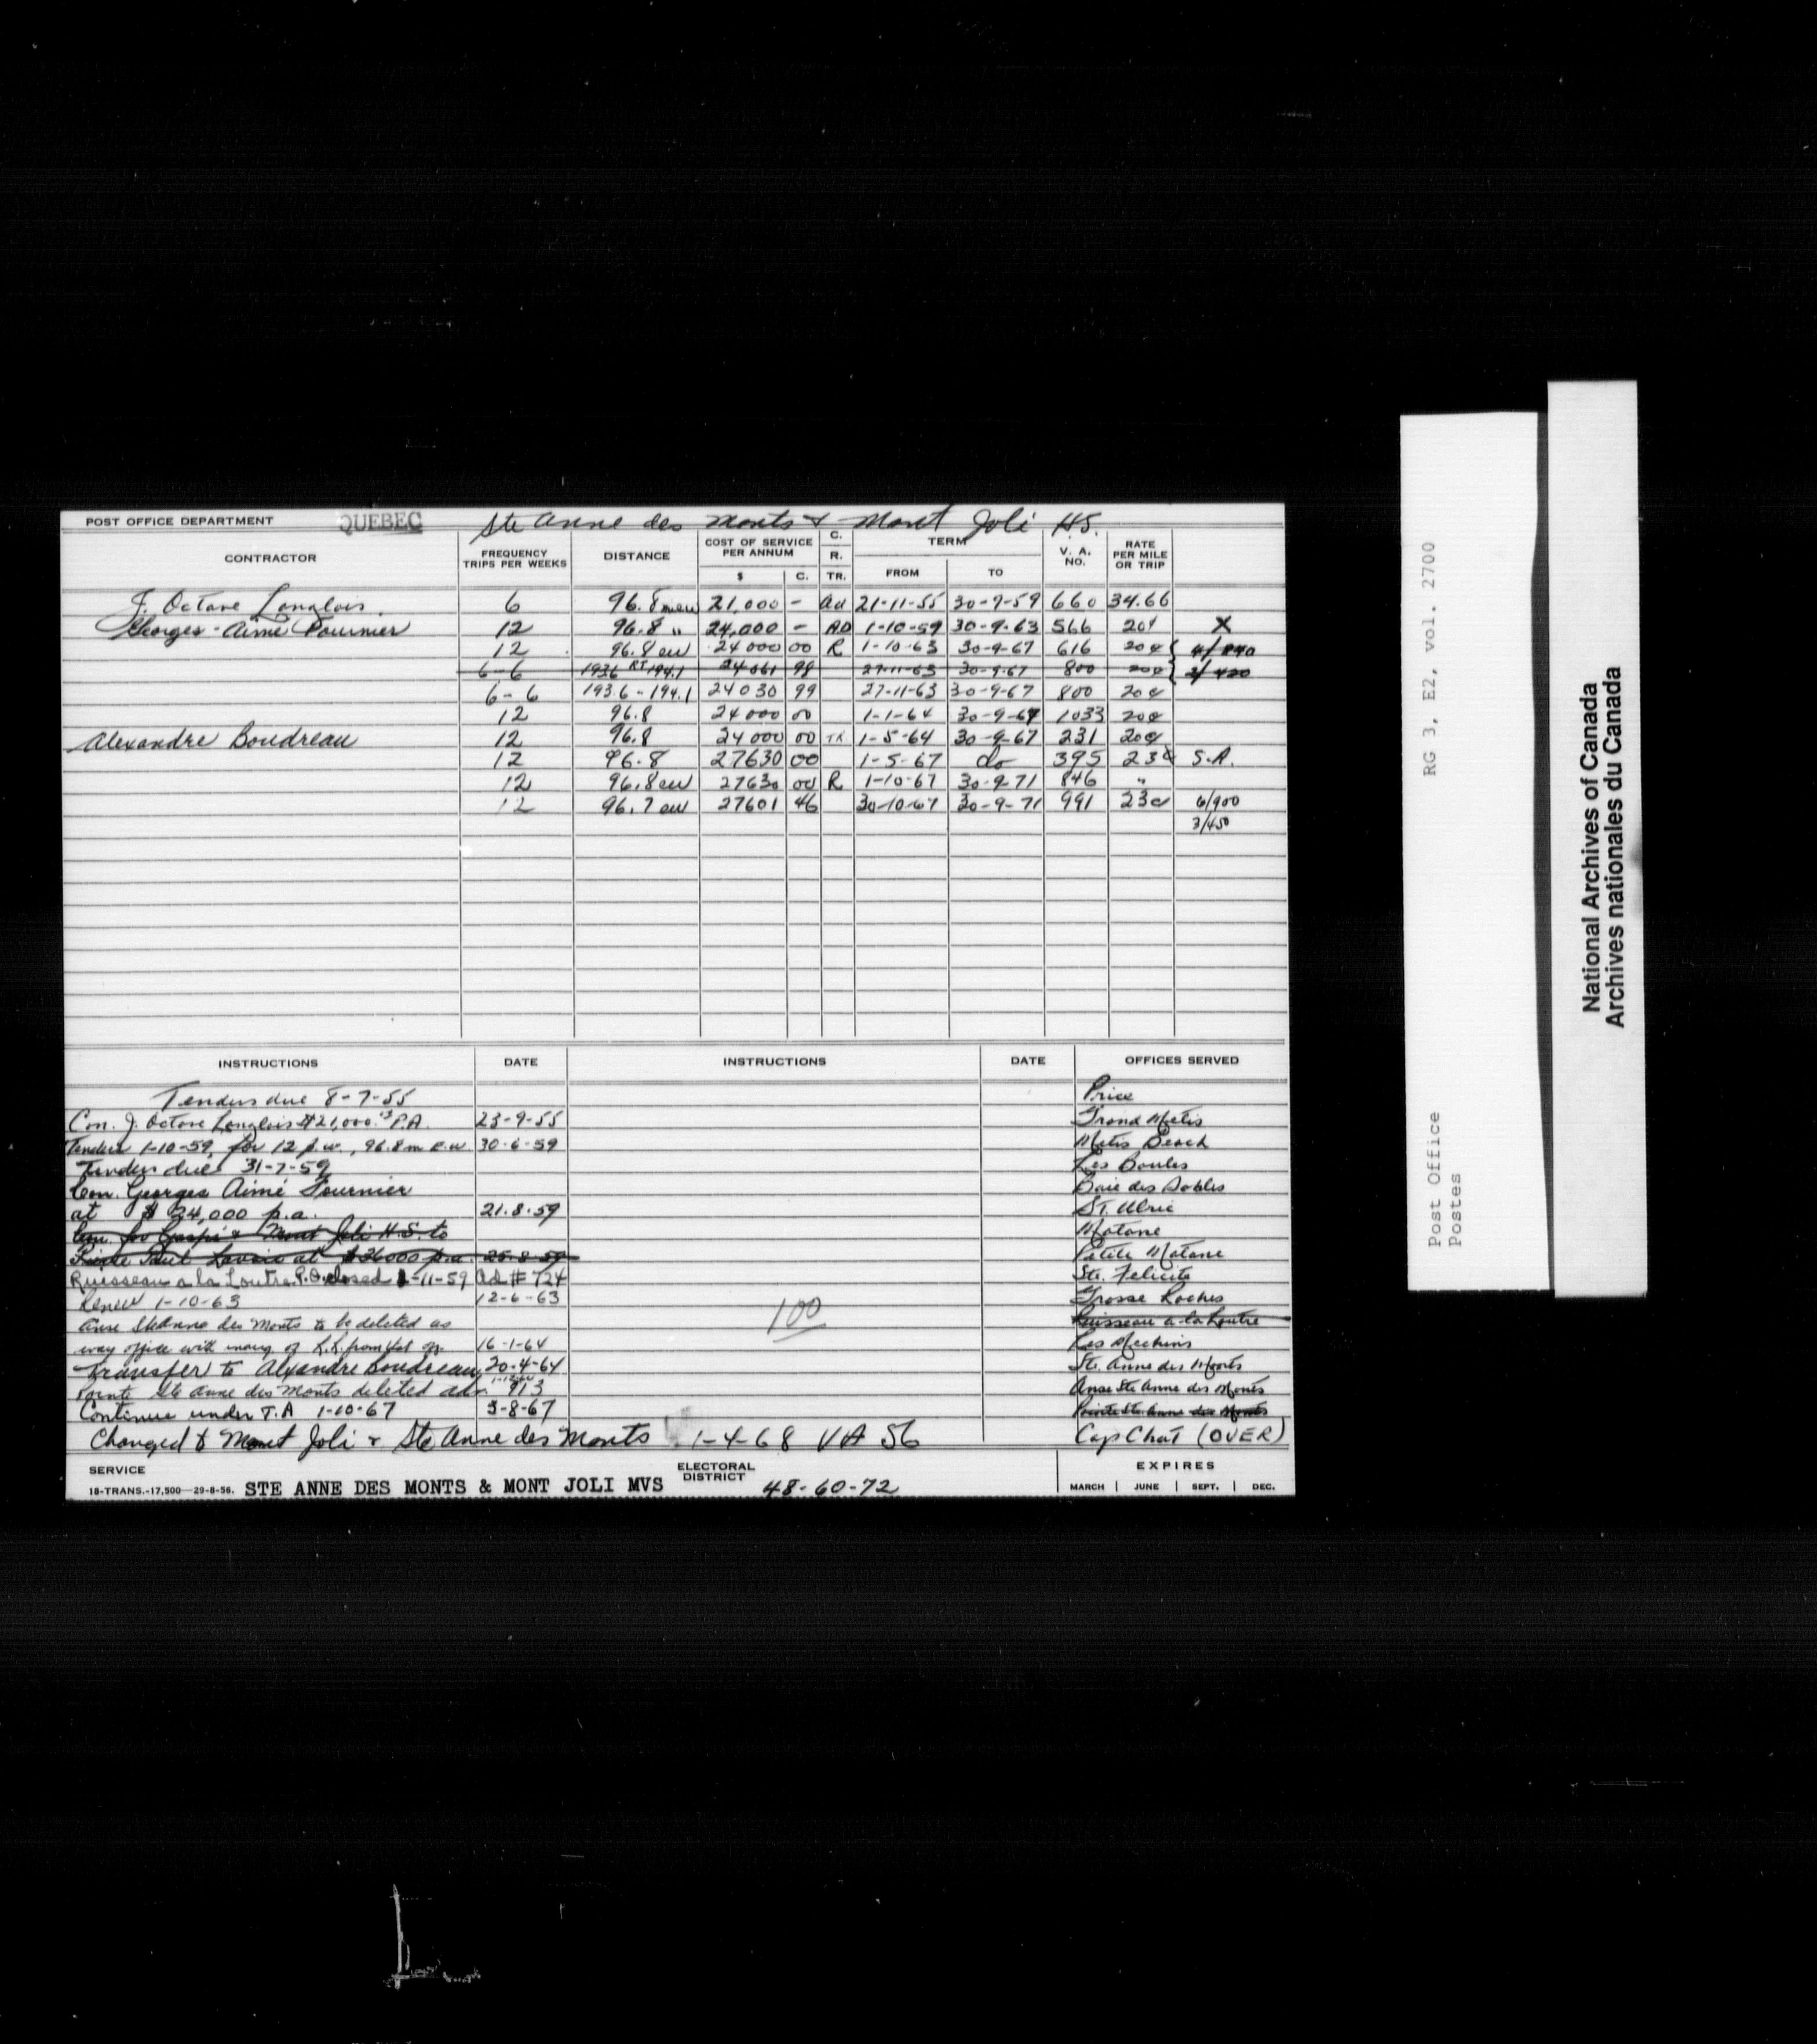 POST OFFICE DEPARTMENT QUEBEC Ste Anne des Monts & Mont Joli H.S.
CONTRACTOR FREQUENCY TRIPS PER WEEKS DISTANCE COST OF SERVICE PER ANNUM $ C. C. R. TR. TERM FROM TO V. A. NO. RATE PER MILE OR TRIP
J. Octave Langlois. 6 96.8 21,000 - Ad 21-11-55 30-9-59 660 34.66
Georges-Aimé Fournier 12 96.8 " 24,000 - AD 1-10-59 30-9-63 566 20¢ X
12 96.8 ew 24000 00 R 1-10-63 30-9-67 616 20¢
6-6 193.6 RT 194.1 24061 98 27-11-63 30-9-67 800 20¢
6-6 193.6-194.1 24030 99 27-11-63 30-9-67 800 20¢
12 96.8 24000 00 1-1-64 30-9-67 1033 20¢
Alexandre Boudreau 12 96.8 24000 00 TR 1-5-64 30-9-67 231 20¢
12 96.8 27630 00 1-5-67 do 395 23¢ S.A.
12 96.8 ew 27630 00 R 1-10-67 30-9-71 846 "
12 96.7 ew 27601 46 30-10-67 30-9-71 991 23¢ 6/900
3/450
INSTRUCTIONS DATE INSTRUCTIONS DATE OFFICES SERVED
Tenders due 8-7-55 Price
Con. J. Octave Langlois $21,000. P.A. 23-9-55 Grand Metis
Tenders 1-10-59, for 12 p.w., 96.8 m e.w. 30-6-59 Metis Beach
Tenders due 31-7-59 Les Boules
Con. Georges Aimé Fournier Baie des Sables
at $24,000 p.a. 21.8.59 St. Ulric
Con. for Gaspé & Mont Joli H.S. to Matane
at $26000 p.a. 25-8-59 Petite Matane
Ruisseau a la Loutre P.O. closed 1-11-59 Ad # 724 Ste. Felicite
Renew 1-10-63 12-6-63 100 Grosse Roches
Anse Ste Anne des Monts to be deleted as Ruisseau a la Loutre
way office with 16-1-64 Les Mechins
Transfer to Alexandre Boudreau 20-4-64 Ste. Anne des Monts
Pointe Ste Anne des Monts deleted adv. 913 Anse Ste Anne des Monts
Continue under T.A 1-10-67 3-8-67 Pointe Ste. Anne des Monts
Changed to Mont Joli & Ste Anne des Monts 1-4-68 VA 56 Cap Chat (OVER)
SERVICE ELECTORAL DISTRICT EXPIRES
18-TRANS.-17,500—29-8-56. STE ANNE DES MONTS & MONT JOLI MVS 48-60-72 MARCH JUNE SEPT. DEC.
RG 3, E2, vol. 2700
Post Office
Postes
National Archives of Canada
Archives nationales du Canada